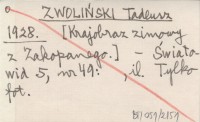 ZWOLIŃSKI Tadeusz
1928. [Krajobraz zimowy
z Zakopanego.] - Świato-
wid 5, nr 49: , il. Tylko
fot.